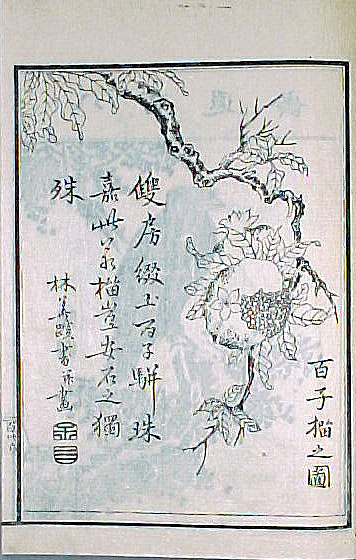 百子榴之圖
雙房綴玉百子駢珠
嘉此若榴豈安石之獨
殊
林 書并畫